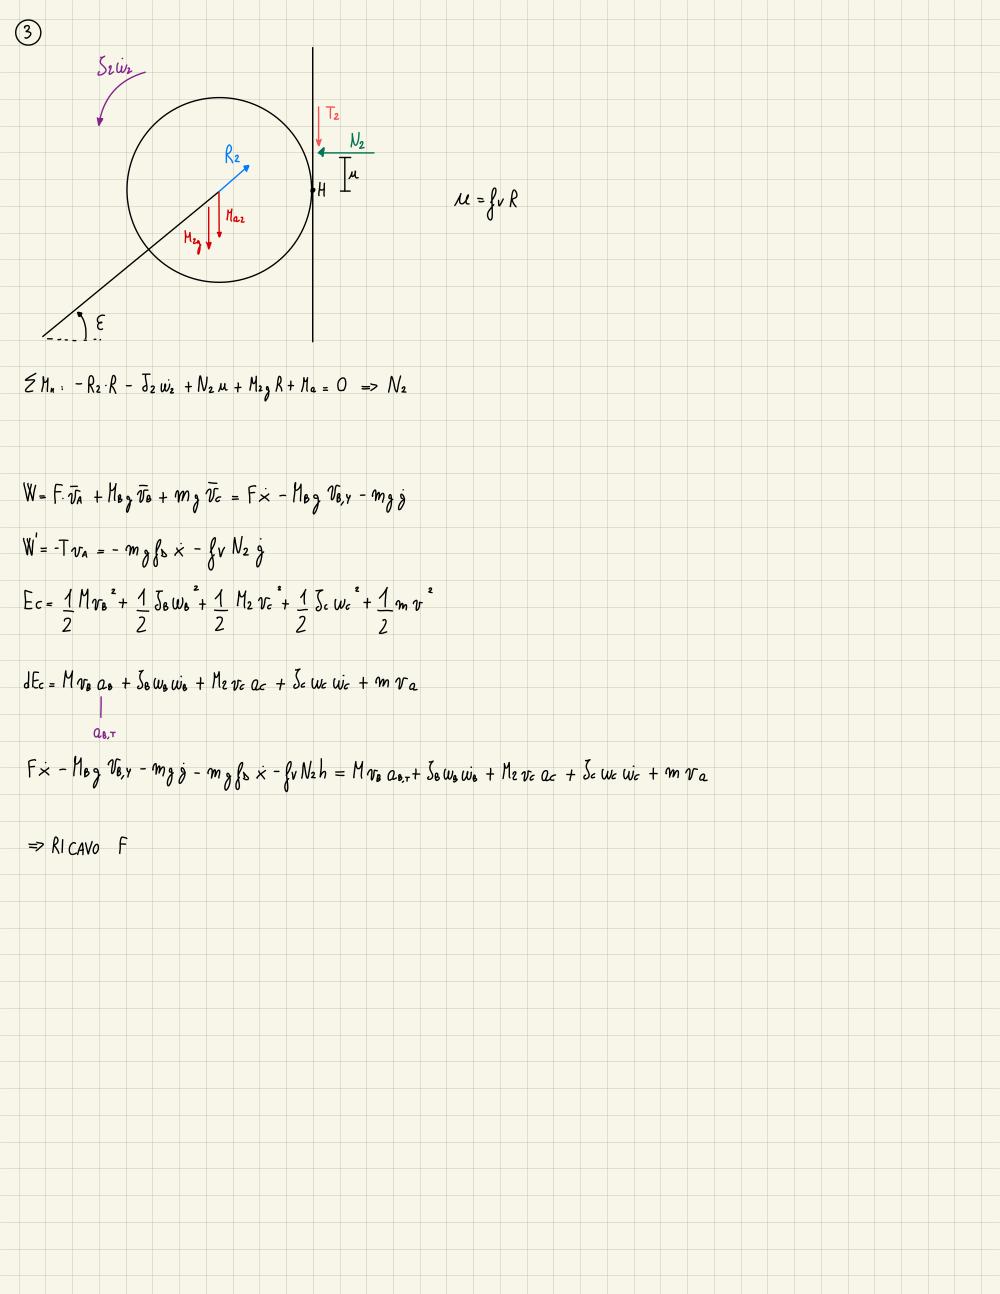 3
J₂ω̇₂
T₂
N₂
R₂
μ
H
Ma₂
M₂g
μ = fv R
ε
ΣM_H: -R₂·R - J₂ω̇₂ + N₂μ + M₂gR + Ma = 0 ⇒ N₂
W = F·v̄_A + M_B g v̄_B + mg v̄_C = Fẋ - M_B g v_B,Y - mg ẏ
W' = -T v_A = -mg f_D ẋ - fv N₂ ẏ
Ec = 1/2 M v_B² + 1/2 J_B ω_B² + 1/2 M₂ v_C² + 1/2 J_C ω_C² + 1/2 m v²
dEc = M v_B a_B + J_B ω_B ω̇_B + M₂ v_C a_C + J_C ω_C ω̇_C + m v a
a_B,T
Fẋ - M_B g v_B,Y - mg ẏ - mg f_D ẋ - fv N₂ h = M v_B a_B,T + J_B ω_B ω̇_B + M₂ v_C a_C + J_C ω_C ω̇_C + m v a
⇒ RICAVO F